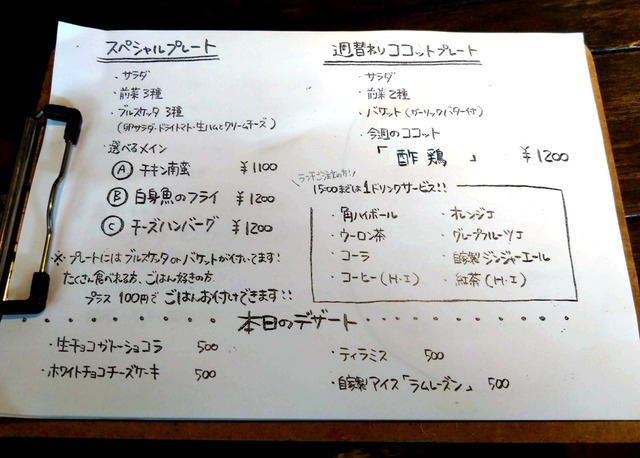 スペシャルプレート
・サラダ
・前菜3種
・ブルスケッタ 3種
(卵サラダ・ドライトマト・生ハムとクリームチーズ)
・選べるメイン
Ⓐ チキン南蛮 ¥1100
Ⓑ 白身魚のフライ ¥1200
Ⓒ チーズハンバーグ ¥1200
※プレートにはブルスケッタorバケットが付いてます!
たくさん食べれる方、ごはん好きの方、
プラス100円でごはんお付けできます!!
週替わりココットプレート
・サラダ
・前菜2種
・バケット(ガーリックバター付)
・今週のココット
「酢鶏」 ¥1200
ランチご注文の方!
15:00までは1ドリンクサービス!!
・角ハイボール ・オレンジJ
・ウーロン茶 ・グレープフルーツJ
・コーラ ・自家製ジンジャーエール
・コーヒー(H・I) ・紅茶(H・I)
本日のデザート
・生チョコガトーショコラ 500
・ティラミス 500
・ホワイトチョコチーズケーキ 500
・自家製アイス「ラムレーズン」 500